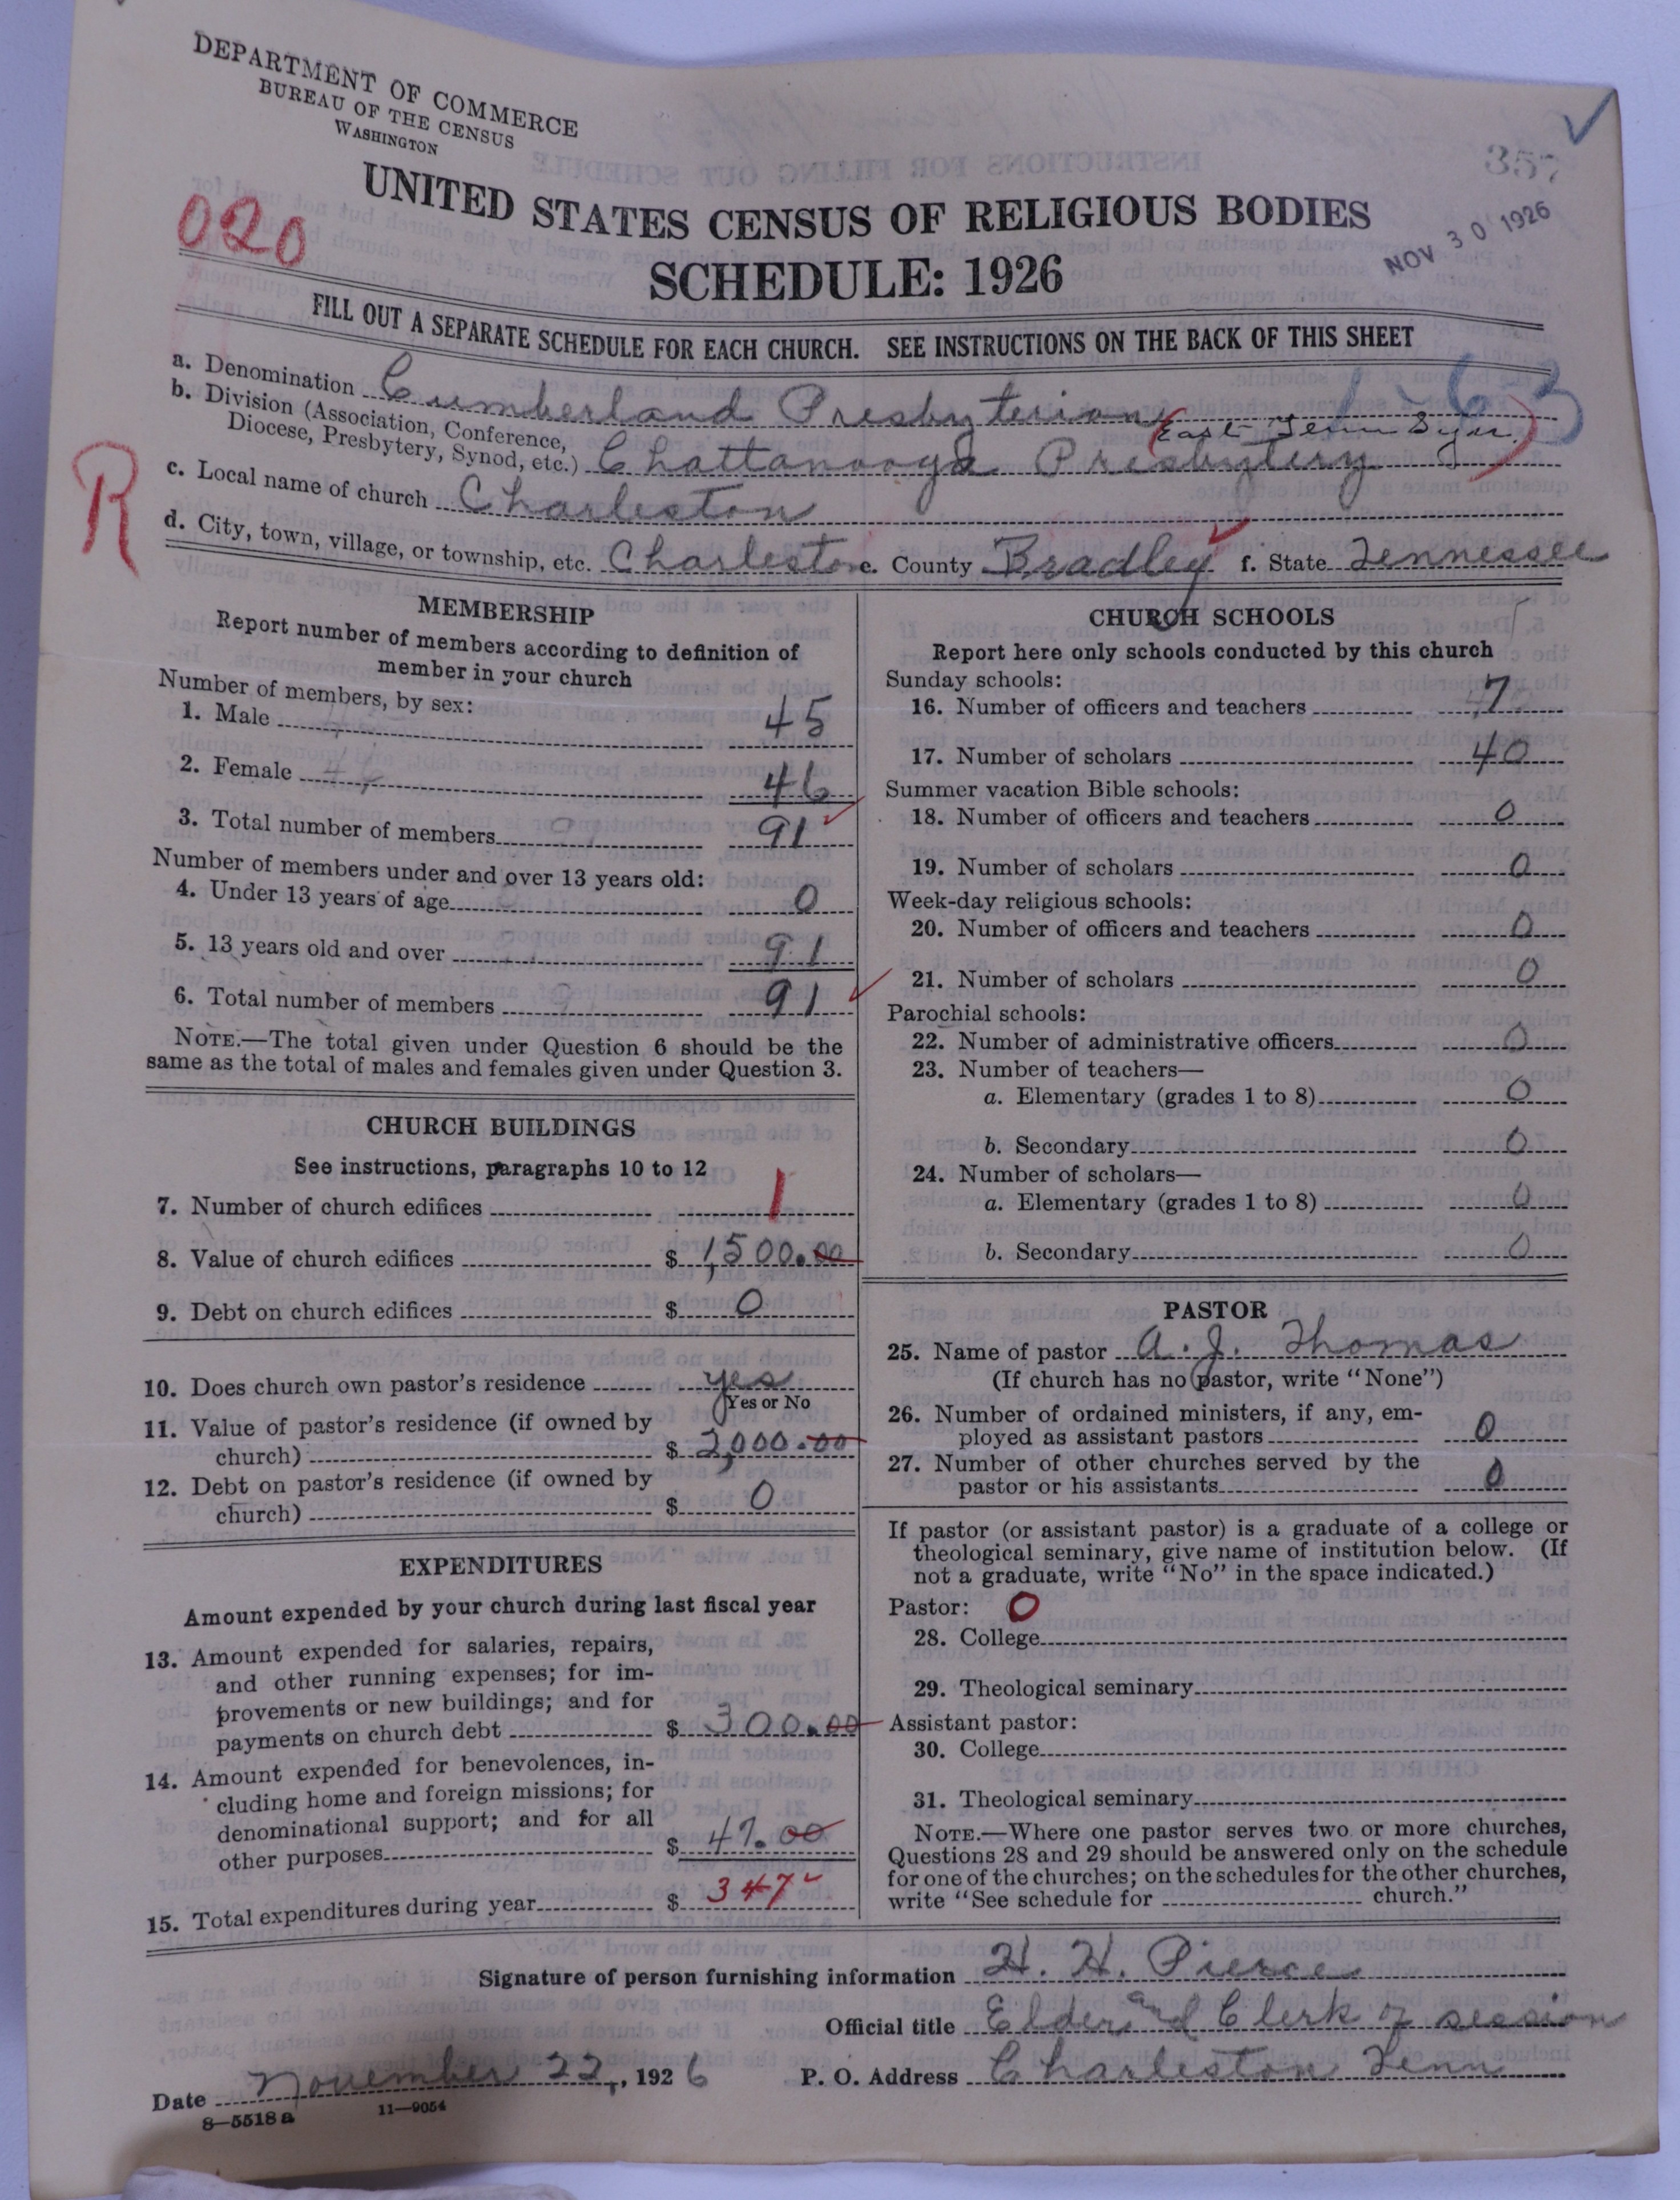 DEPARTMENT OF COMMERCE
BUREAU OF THE CENSUS
WASHINGTON
UNITED STATES CENSUS OF RELIGIOUS BODIES
SCHEDULE: 1926
020
NOV 30 1926
FILL OUT A SEPARATE SCHEDULE FOR EACH CHURCH. SEE INSTRUCTIONS ON THE BACK OF THIS SHEET
a. Denomination Cumberland Presbyterian
b. Division (Association, Conference,
Diocese, Presbytery, Synod, etc.) Chattanooga Presbytery (East Tenn Syn.)
R
c. Local name of church Charleston
d. City, town, village, or township, etc. Charleston e. County Bradley f. State Tennessee
MEMBERSHIP
Report number of members according to definition of
member in your church
Number of members, by sex:
1. Male 45
2. Female 46
3. Total number of members 91
Number of members under and over 13 years old:
4. Under 13 years of age 0
5. 13 years old and over 91
6. Total number of members 91
NOTE.—The total given under Question 6 should be the
same as the total of males and females given under Question 3.
CHURCH BUILDINGS
See instructions, paragraphs 10 to 12
7. Number of church edifices 1
8. Value of church edifices $ 1,500.00
9. Debt on church edifices $ 0
10. Does church own pastor's residence yes
Yes or No
11. Value of pastor's residence (if owned by
church) $ 2,000.00
12. Debt on pastor's residence (if owned by
church) $ 0
EXPENDITURES
Amount expended by your church during last fiscal year
13. Amount expended for salaries, repairs,
and other running expenses; for im-
provements or new buildings; and for
payments on church debt $ 300.00
14. Amount expended for benevolences, in-
cluding home and foreign missions; for
denominational support; and for all
other purposes $ 47.00
15. Total expenditures during year $ 347
CHURCH SCHOOLS
Report here only schools conducted by this church
Sunday schools:
16. Number of officers and teachers 7
17. Number of scholars 40
Summer vacation Bible schools:
18. Number of officers and teachers 0
19. Number of scholars 0
Week-day religious schools:
20. Number of officers and teachers 0
21. Number of scholars 0
Parochial schools:
22. Number of administrative officers 0
23. Number of teachers—
a. Elementary (grades 1 to 8) 0
b. Secondary 0
24. Number of scholars—
a. Elementary (grades 1 to 8) 0
b. Secondary 0
PASTOR
25. Name of pastor A. J. Thomas
(If church has no pastor, write "None")
26. Number of ordained ministers, if any, em-
ployed as assistant pastors 0
27. Number of other churches served by the
pastor or his assistants 0
If pastor (or assistant pastor) is a graduate of a college or
theological seminary, give name of institution below. (If
not a graduate, write "No" in the space indicated.)
Pastor: 0
28. College
29. Theological seminary
Assistant pastor:
30. College
31. Theological seminary
NOTE.—Where one pastor serves two or more churches,
Questions 28 and 29 should be answered only on the schedule
for one of the churches; on the schedules for the other churches,
write "See schedule for church."
Signature of person furnishing information H. H. Pierce
Official title Elder and Clerk of session
Date November 22, 1926 P. O. Address Charleston Tenn
8—5518 a 11—9054